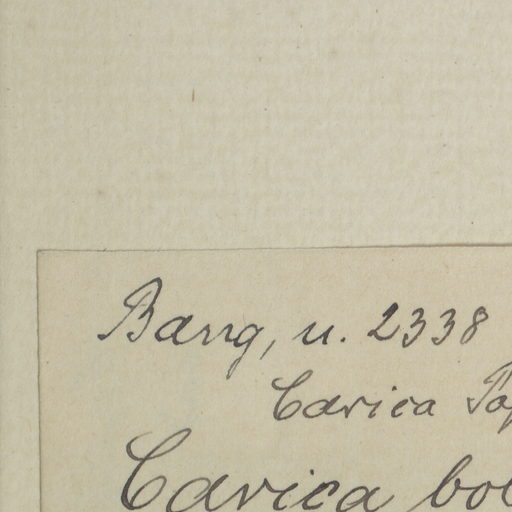 Bang, n. 2338
Carica Pap
Carica bol